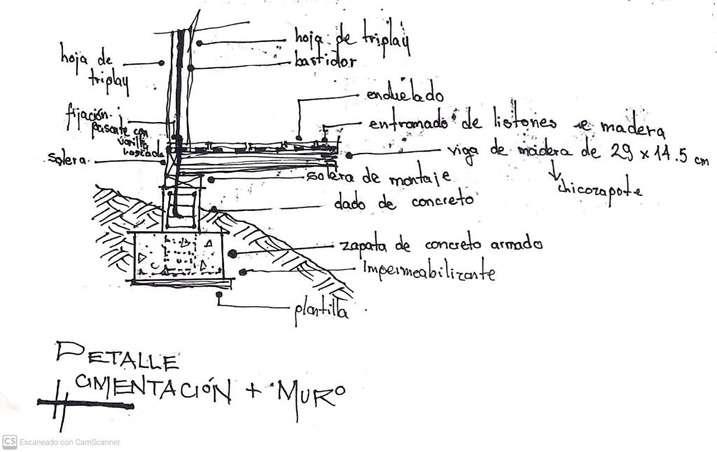 hoja de triplay
bastidor
hoja de
triplay
enduelado
fijación
pasante con
varilla
roscada
entramado de listones de madera
solera
viga de madera de 29 x 14.5 cm
chicozapote
solera de montaje
dado de concreto
zapata de concreto armado
Impermeabilizante
plantilla
DETALLE
CIMENTACIÓN + MURO
CS Escaneado con CamScanner